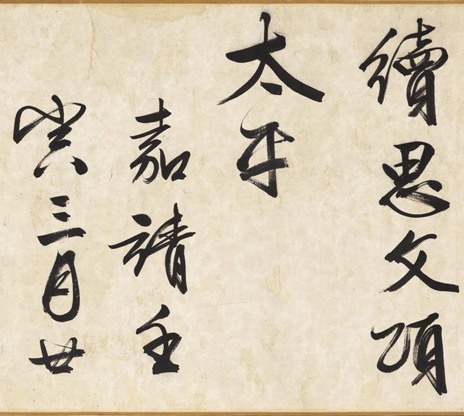 續思文頌
太平
嘉靖壬
寅三月廿